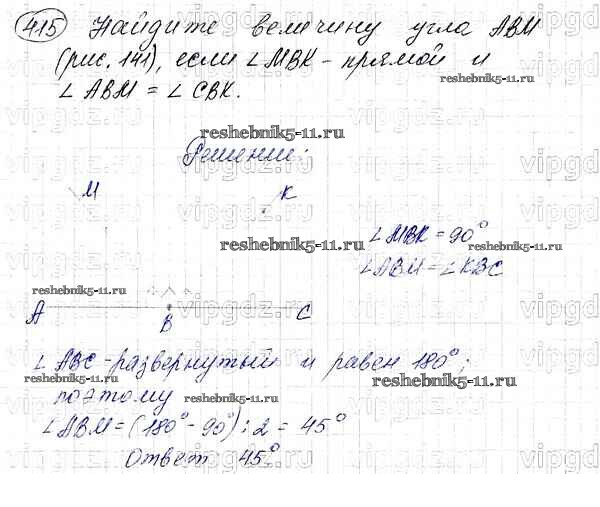 415 Найдите величину угла ABM
(рис. 141), если ∠MBK - прямой и
∠ABM = ∠CBK.
reshebnik5-11.ru
Решение:
M K
reshebnik5-11.ru
∠MBK = 90°
reshebnik5-11.ru
∠ABM = ∠KBC
reshebnik5-11.ru
A B C
∠ABC - развернутый и равен 180°;
reshebnik5-11.ru reshebnik5-11.ru
поэтому reshebnik5-11.ru
∠ABM = (180° - 90°) : 2 = 45°
reshebnik5-11.ru
Ответ: 45°
vipgdz.ru